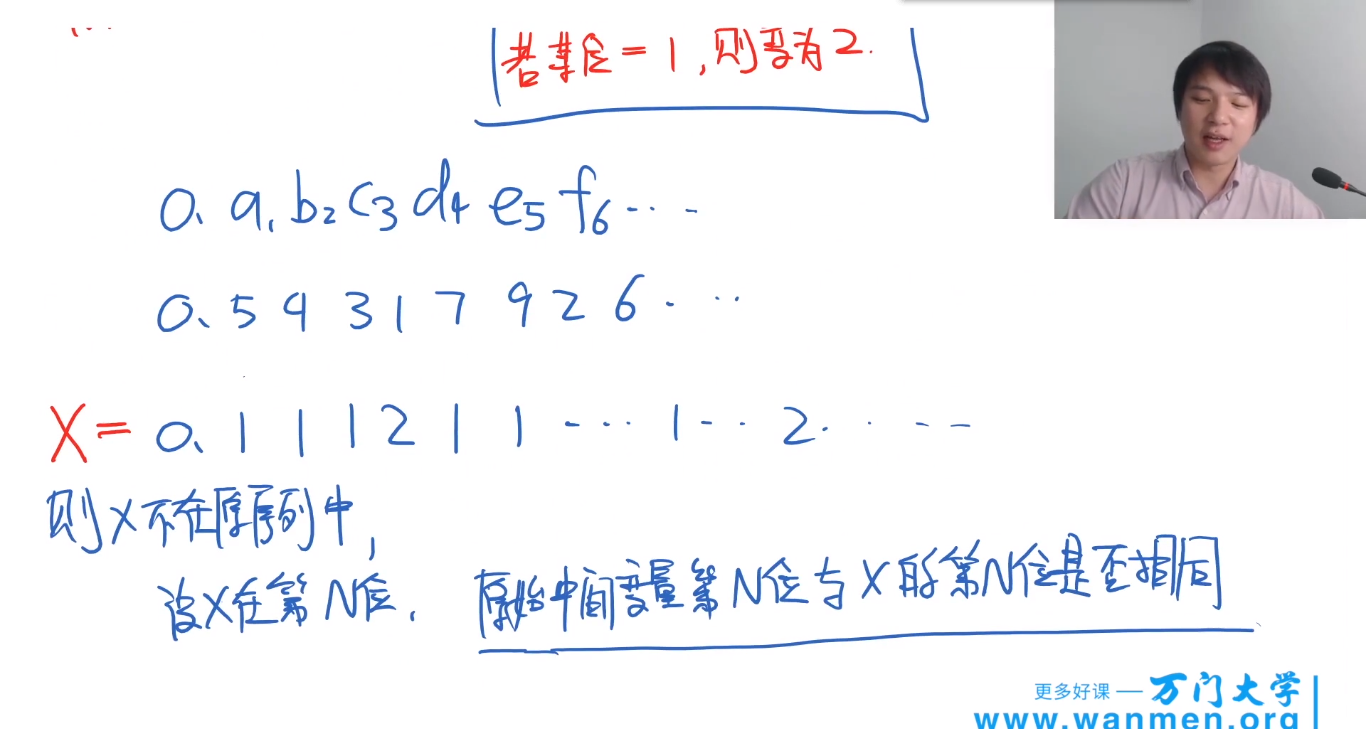 若某位=1,则变为2.
0.a₁b₂c₃d₄e₅f₆……
0.54317926……
X=0.111211……1……2……
则X不在原序列中,
设X在第N位. 原始中间变量第N位与X的第N位是否相同
更多好课 — 万门大学
www.wanmen.org